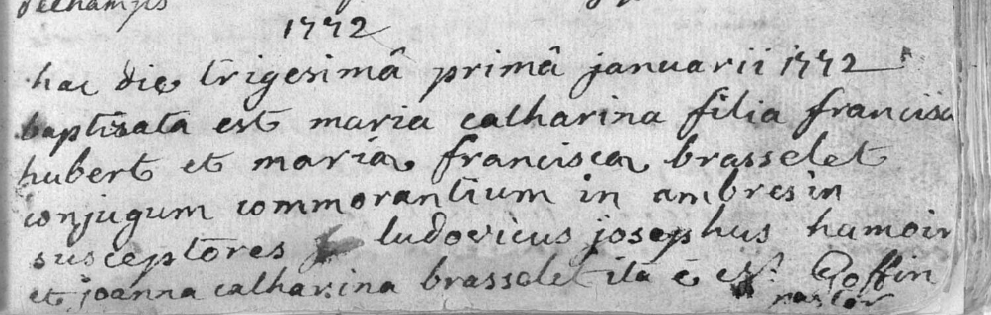 delhamps
1772
hac die trigesimâ primâ januarii 1772
baptisata est maria catharina filia francisci
hubert et maria francisca brasselet
conjugum commorantium in ambresin
susceptores ludovicus josephus hamoir
et joanna catharina brasselet ita ē Goffin
pastor